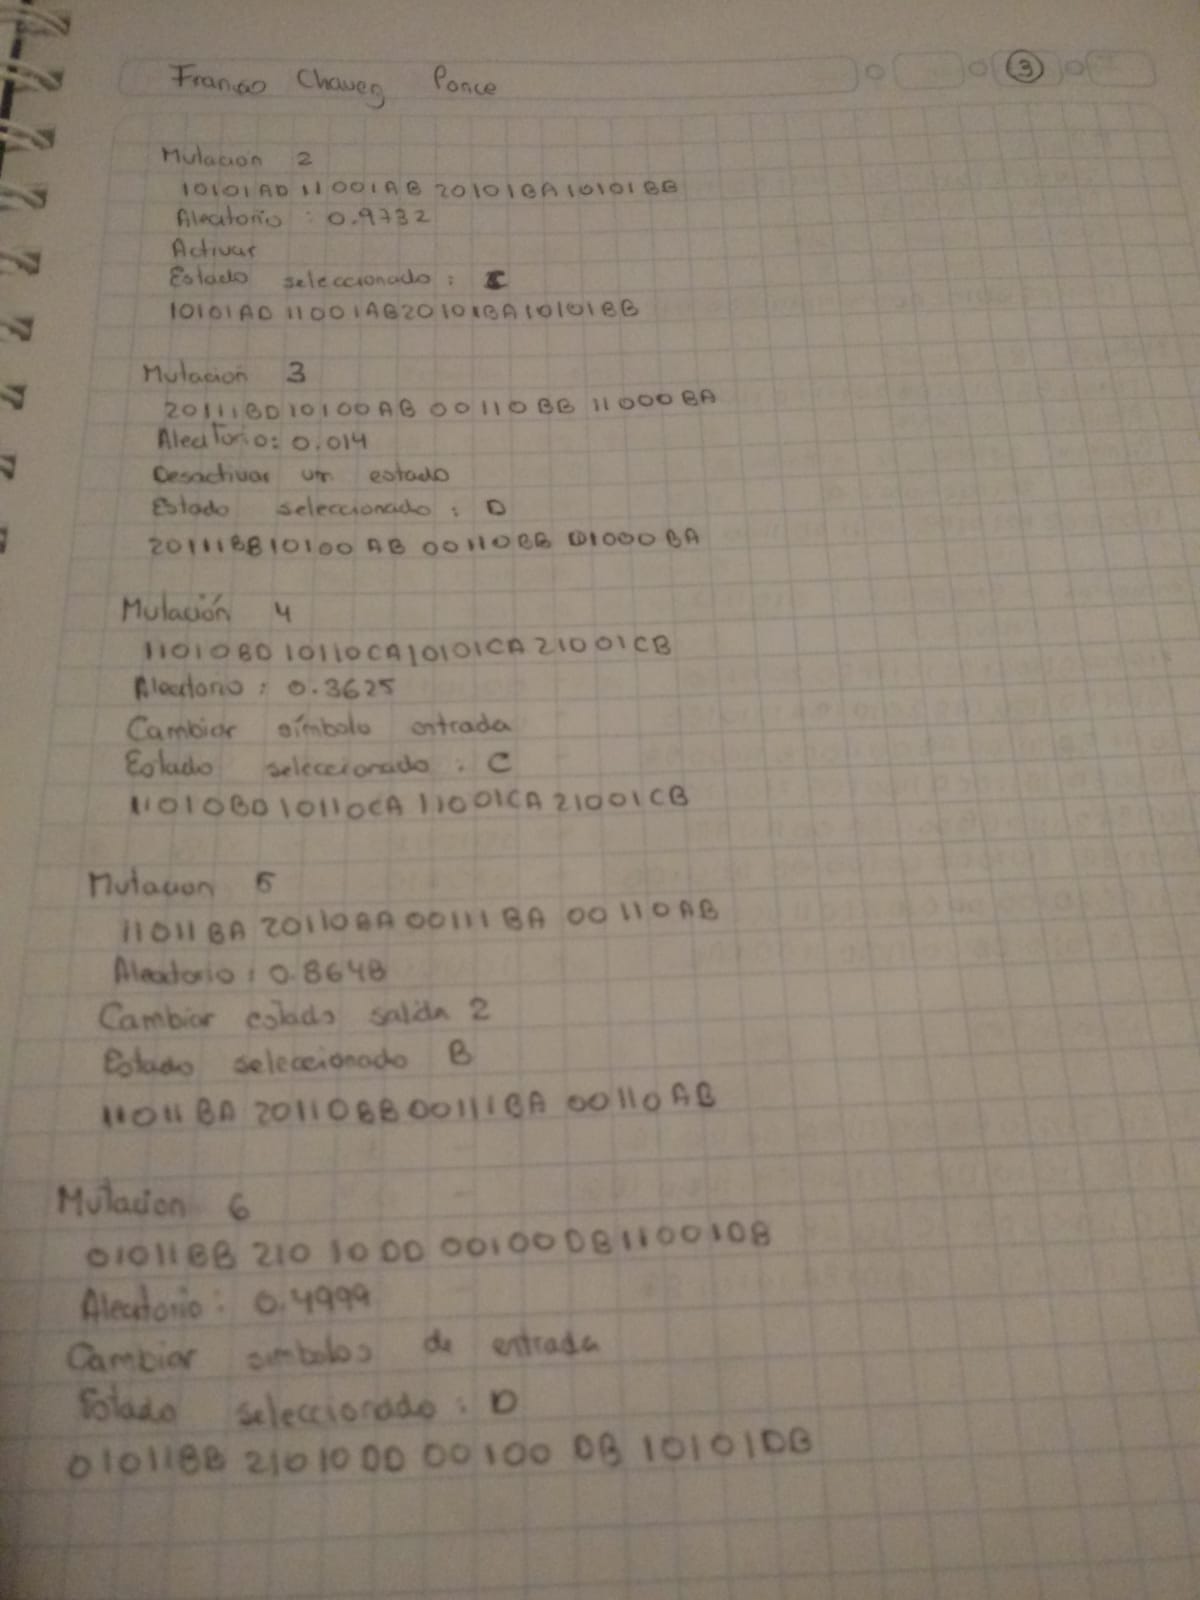 Franco Chavez Ponce
3
Mutacion 2
10101AD 11001AB 20101BA10101BB
Aleatorio : 0.9732
Activar
Estado seleccionado : C
10101AD 11001AB20101BA10101BB
Mutacion 3
20111BD10100AB 00110BB 11000BA
Aleatorio: 0.014
Desactivar un estado
Estado seleccionado : D
20111BB10100 AB 00110BB 01000BA
Mutación 4
11010BD 10110CA10101CA21001CB
Aleatorio : 0.3625
Cambiar símbolo entrada
Estado seleccionado : C
11010BD10110CA 11001CA21001CB
Mutacion 5
11011BA 20110BA00111BA 00110AB
Aleatorio : 0.8648
Cambiar estado salida 2
Estado seleccionado B
11011BA 20110BB00111BA 00110AB
Mutacion 6
01011BB 2101000 00100DB11001DB
Aleatorio : 0.4999
Cambiar simbolos de entrada
Estado seleccionado : D
01011BB 21010DD 00100 DB 10101DB